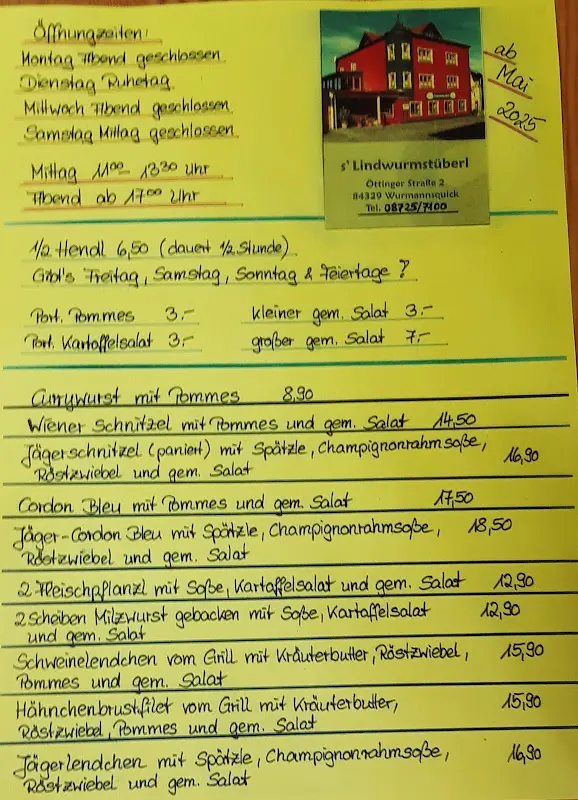 Öffnungszeiten:
Montag Abend geschlossen
Dienstag Ruhetag
Mittwoch Abend geschlossen
Samstag Mittag geschlossen
Mittag 11⁰⁰ - 13³⁰ Uhr
Abend ab 17⁰⁰ Uhr
s' Lindwurmstüberl
Öttinger Straße 2
84329 Wurmannsquick
Tel. 08725/7100
ab
Mai
2025
1/2 Hendl 6,50 (dauert 1/2 Stunde)
Gibt's Freitag, Samstag, Sonntag & Feiertage ?
Port. Pommes 3.- kleiner gem. Salat 3.-
Port. Kartoffelsalat 3.- großer gem. Salat 7.-
Currywurst mit Pommes 8,90
Wiener Schnitzel mit Pommes und gem. Salat 14,50
Jägerschnitzel (paniert) mit Spätzle, Champignonrahmsoße, 16,90
Röstzwiebel und gem. Salat
Cordon Bleu mit Pommes und gem. Salat 17,50
Jäger-Cordon Bleu mit Spätzle, Champignonrahmsoße, 18,50
Röstzwiebel und gem. Salat
2 Fleischpflanzl mit Soße, Kartoffelsalat und gem. Salat 12,90
2 Scheiben Milzwurst gebacken mit Soße, Kartoffelsalat 12,90
und gem. Salat
Schweinelendchen vom Grill mit Kräuterbutter, Röstzwiebel, 15,90
Pommes und gem. Salat
Hähnchenbrustfilet vom Grill mit Kräuterbutter, 15,90
Röstzwiebel, Pommes und gem. Salat
Jägerlendchen mit Spätzle, Champignonrahmsoße, 16,90
Röstzwiebel und gem. Salat